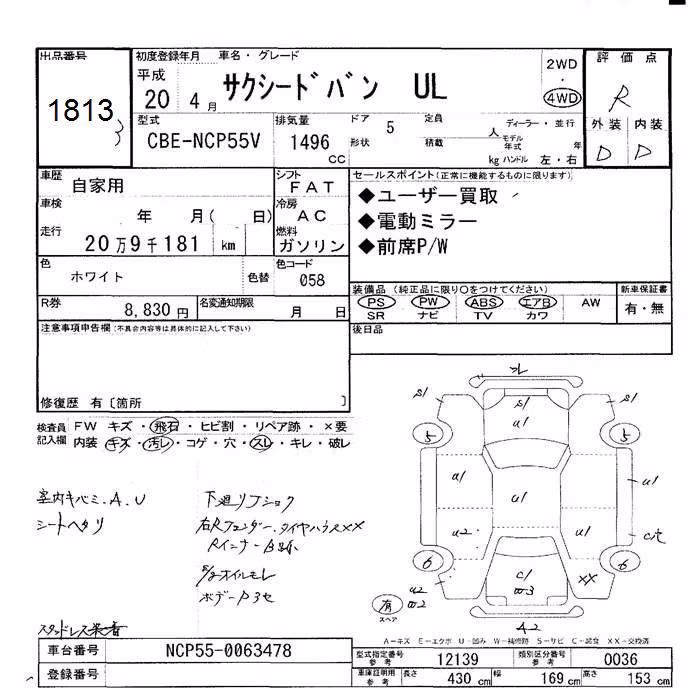 出品番号
1813
初度登録年月 車名・グレード
平成 20 4月 サクシードバン UL
2WD
・
4WD
評価点
R
外装 内装
D D
型式
CBE-NCP55V
排気量
1496 cc
ドア 5 定員 人
形状 積載 kg
ディーラー・並行
モデル年式 年
ハンドル 左・右
車歴 自家用
車検 年 月( 日)
走行 20万9千181 km
シフト FAT
冷房 AC
燃料 ガソリン
色 ホワイト 色替
色コード 058
R券 8,830円
名変通知期限 月 日
セールスポイント(正常に機能するものに限ります)
◆ユーザー買取
◆電動ミラー
◆前席P/W
装備品 (純正品に限り○をつけてください)
PS PW ABS エアB AW
SR ナビ TV カワ
新車保証書
有・無
後日品
注意事項申告欄(不具合内容等は具体的に記入して下さい)
修復歴 有〔箇所 〕
検査員記入欄
FW キズ・飛石・ヒビ割・リペア跡・×要
内装 キズ・汚レ・コゲ・穴・スレ・キレ・破レ
室内キバミ、A、U
シートヘタリ
下廻りフショク
右Rフェンダー、タイヤハウスXX
S/gオイルモレ
スタッドレス装着
S1 S1 S1
U1
5 5
U1 U1 U1
U2 U1
6 6
C1
W3
XX
U2
W2
有
スペア
A2
A-キズ E-エクボ U-凹み W-補修跡 S-サビ C-腐食 XX-交換済
車台番号 NCP55-0063478
登録番号
型式指定番号 参考 12139
類別区分番号 参考 0036
車庫証明用 参考 長さ 430 cm 幅 169 cm 高さ 153 cm